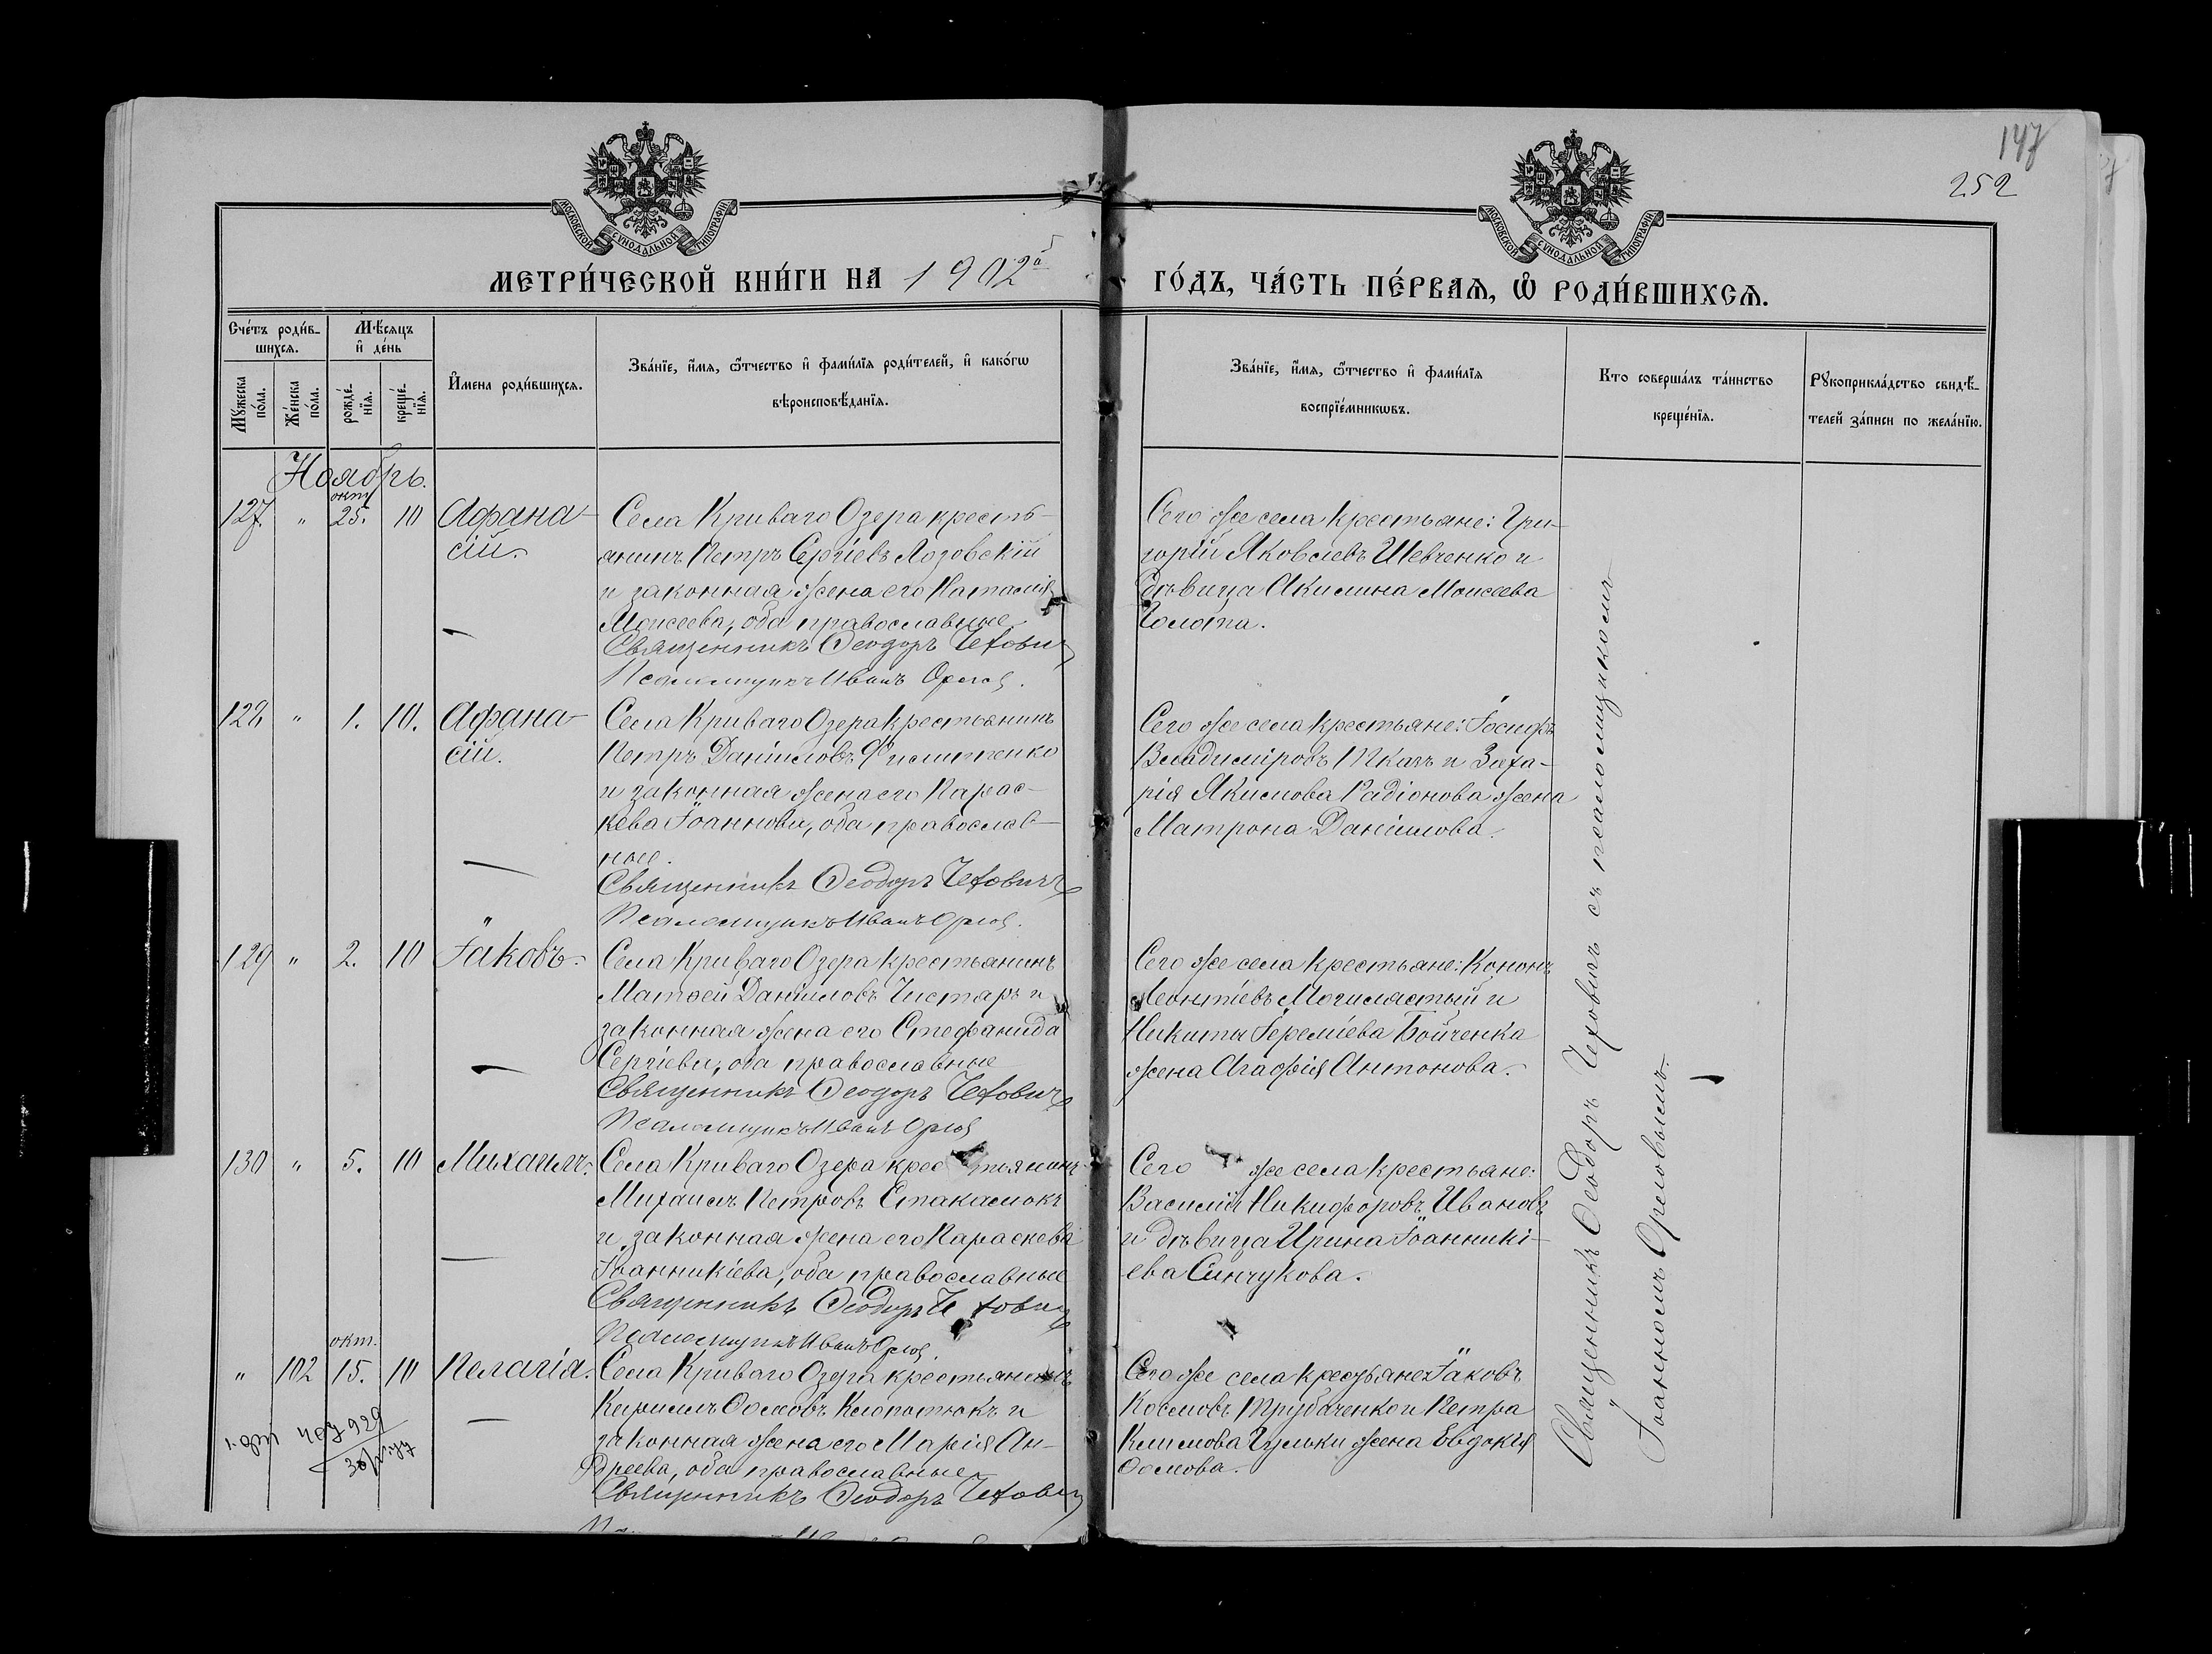 147
252
МОСКОВСКОЙ СѴНОДАЛЬНОЙ ТИПОГРАФІИ
МОСКОВСКОЙ СѴНОДАЛЬНОЙ ТИПОГРАФІИ
МЕТРИ́ЧЕСКОЙ КНИ́ГИ НА 1902й
ГО́ДЪ, ЧА́СТЬ ПЕ́РВАЯ, Ѡ РОДИ́ВШИХСЯ.
Сче́тъ роди́в-
шихся.
Мѣ́сяцъ
и де́нь
Му́жеска по́ла.
Же́нска по́ла.
рожде́нїя.
креще́нїя.
И҆мена роди́вшихся.
Зва́нїе, и҆́мя, ѻ҆́тчество и҆ фами́лїя роди́телей, и҆ како́гѡ
вѣроисповѣ́данїя.
Зва́нїе, и҆́мя, ѻ҆́тчество и҆ фами́лїя
воспрїе́мникѡвъ.
Кто соверша́лъ та́инство
креще́нїя.
Рꙋкоприкла́дство свидѣ́-
телей за́писи по жела́нїю.
Ноябрь.
окт
127. " 25. 10 Афана-
сій.
Села Криваго Озера кресть-
янинъ Петръ Сергіевъ Лозовскій
и законная жена его Наталія
Моисеева, оба православные
Священникъ Ѳеодоръ Чехович
Псаломщикъ Иванъ Орлов.
Сего же села крестьяне: Гри-
горій Яковлевъ Шевченко и
дѣвица Акилина Моисеева
Голота.
128 " 1. 10. Афана-
сій.
Села Криваго Озера крестьянинъ
Петръ Даніиловъ Филипенко
и законная жена его Парас-
кева Іоаннова, оба православ-
ные.
Священникъ Ѳеодоръ Чехович
Псаломщикъ Иванъ Орлов.
Сего же села крестьяне: Іосифъ
Владиміровъ Ткачъ и Заха-
рія Якимова Радіонова жена
Матрона Даніилова.
129 " 2. 10 Іаковъ.
Села Криваго Озера крестьянинъ
Матѳей Даніиловъ Чистяръ и
законная жена его Стефанида
Сергіева, оба православные
Священникъ Ѳеодоръ Чехович
Псаломщикъ Иванъ Орлов
Сего же села крестьяне: Кононъ
Леонтіевъ Могилястый и
Никиты Іереміева Бойченка
жена Агафія Антонова.
130 " 5. 10 Михаилъ.
Села Криваго Озера крестьянинъ
Михаилъ Петровъ Стакалюкъ
и законная жена его Параскева
Іоанникіева, оба православные
Священникъ Ѳеодоръ Чехович
Псаломщикъ Иванъ Орлов.
Сего же села крестьяне:
Василій Никифоровъ Ивановъ
и дѣвица Ирина Іоанникі-
ева Синчукова.
окт.
" 102 15. 10 Пелагія.
Села Криваго Озера крестьянинъ
Кириллъ Ѳомовъ Клопотюкъ и
законная жена его Марія Ан-
дреева, оба православные
Священникъ Ѳеодоръ Чехович
Сего же села крестьяне: Іаковъ
Космовъ Трубаченко и Петра
Климова Гульки жена Евдокія
Ѳомова.
Священникъ Ѳеодоръ Чеховичъ съ псаломщикомъ
Іоанномъ Орловымъ.